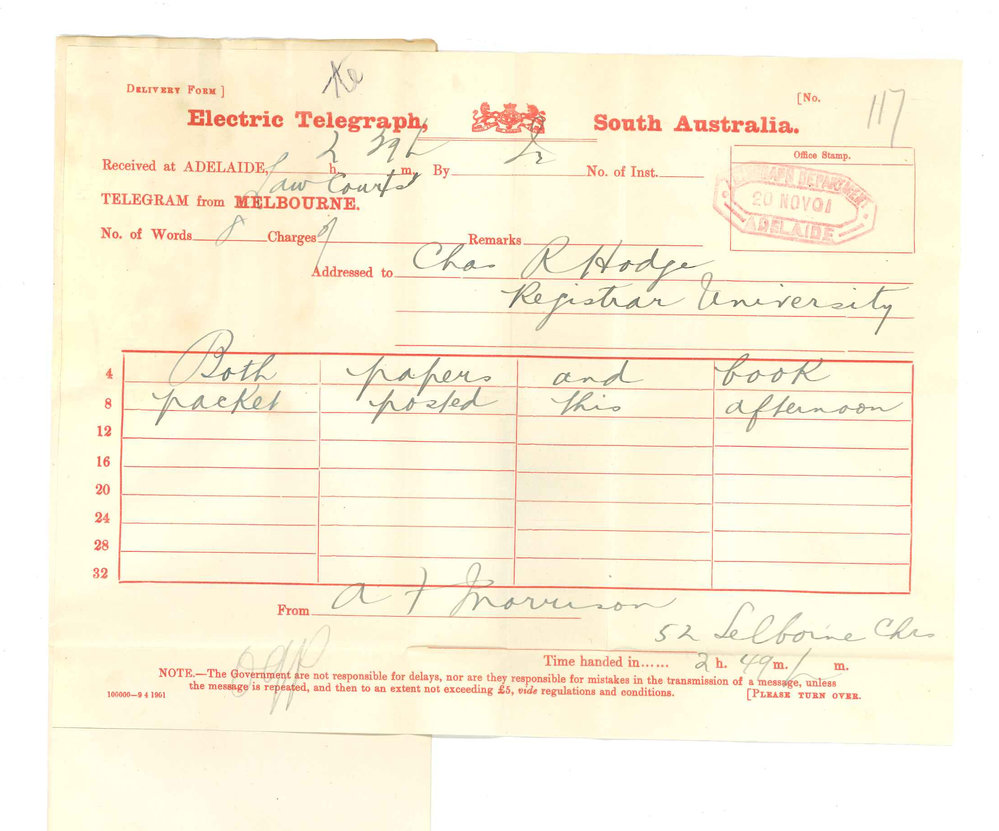 DELIVERY FORM ]
[No. 117
Electric Telegraph, South Australia.
Office Stamp.
Received at ADELAIDE, 2 h. 59 m. By No. of Inst.
TELEGRAPH DEPARTMENT
20 NOV 01
ADELAIDE
Law Courts
TELEGRAM from MELBOURNE.
No. of Words 8 Charges Remarks
Addressed to Chas R Hodge
Registrar University
4 Both papers and book
8 packet posted this afternoon
12
16
20
24
28
32
From A F Morrison
52 Selborne Chrs
Time handed in...... 2 h. 49 m. m.
NOTE.—The Government are not responsible for delays, nor are they responsible for mistakes in the transmission of a message, unless
the message is repeated, and then to an extent not exceeding £5, vide regulations and conditions.
100000—9 4 1901 [PLEASE TURN OVER.